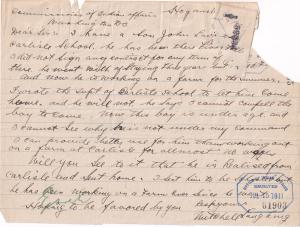 Commissioner of Indian affairs Hogansb
Washington D.C.
Dear Sir: I have a son John
Carlisle School. he has been there
I did not sign any contract for any term of
there
And now he is working on a farm for the summer.
I wrote the supt of Carlisle School to let him come
home, and he will not. he says I cannot compell the
boy to come. Now this boy is under age. and
I cannot see why he is not under my command
I can provide better for him than working out
on a farm at Carlisle for allmost no wages
Will you see to it that he is Realised from
Carlisle and sent home. I sent him to school but
he has been working on a farm ever since
Hoping to be favored by you
Respy
Mitchell
RECEIVED
1911
51903